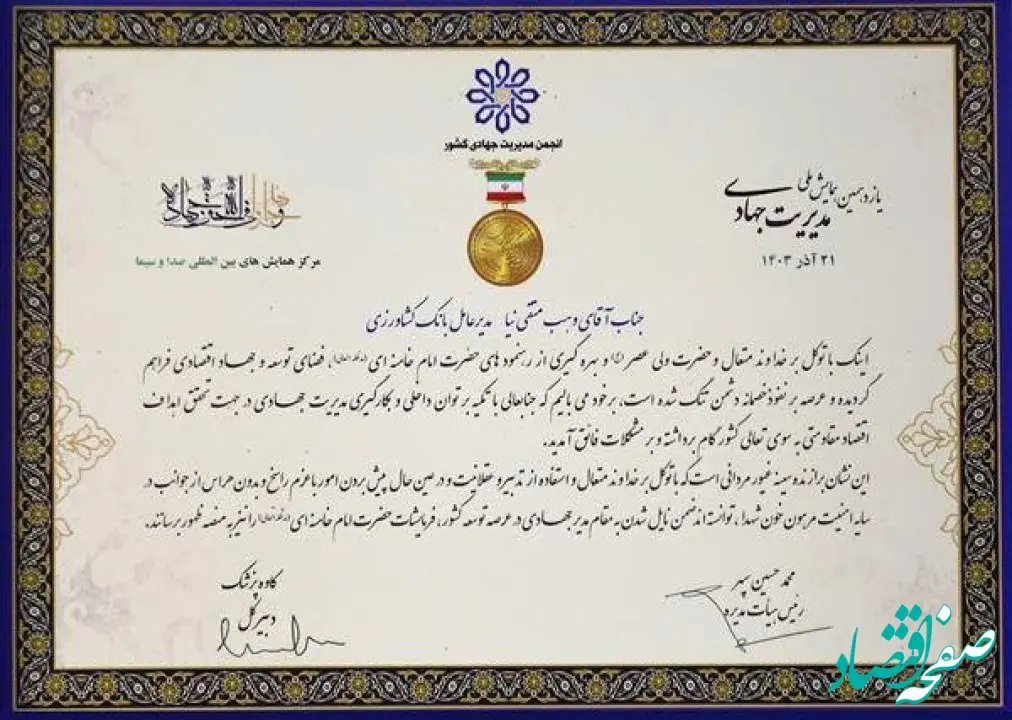 انجمن مدیریت جهادی کشور
یازدهمین همایش ملی
مدیریت جهادی
۲۱ آذر ۱۴۰۳
وجاهدوا فی الله حق جهاده
مرکز همایش های بین المللی صدا و سیما
جناب آقای وهب متقی نیا مدیرعامل بانک کشاورزی
اینک با توکل بر خداوند متعال و حضرت ولی عصر (عج) و بهره گیری از رهنمود های حضرت امام خامنه ای (مدظله العالی)، فضای توسعه و جهاد اقتصادی فراهم
گردیده و عرصه بر نفوذ خصمانه دشمن تنگ شده است، برخود می بالیم که جنابعالی با تکیه بر توان داخلی و بکارگیری مدیریت جهادی در جهت تحقق اهداف
اقتصاد مقاومتی به سوی تعالی کشور گام برداشته و بر مشکلات فائق آمدید.
این نشان برازنده سینه غیور مردانی است که با توکل بر خداوند متعال و استفاده از تدبیر و عقلانیت و در عین حال پیش بردن امور با عزم راسخ و بدون هراس از جوانب در
سایه امنیت مرهون خون شهدا، توانسته اند ضمن نایل شدن به مقام مدیر جهادی در عرصه توسعه کشور، فرمایشات حضرت امام خامنه ای (مدظله العالی) را نیز به منصه ظهور برسانند.
محمد حسین سپهر
رئیس هیأت مدیره
کاوه پزشک
دبیر کل
صفحه اقتصاد